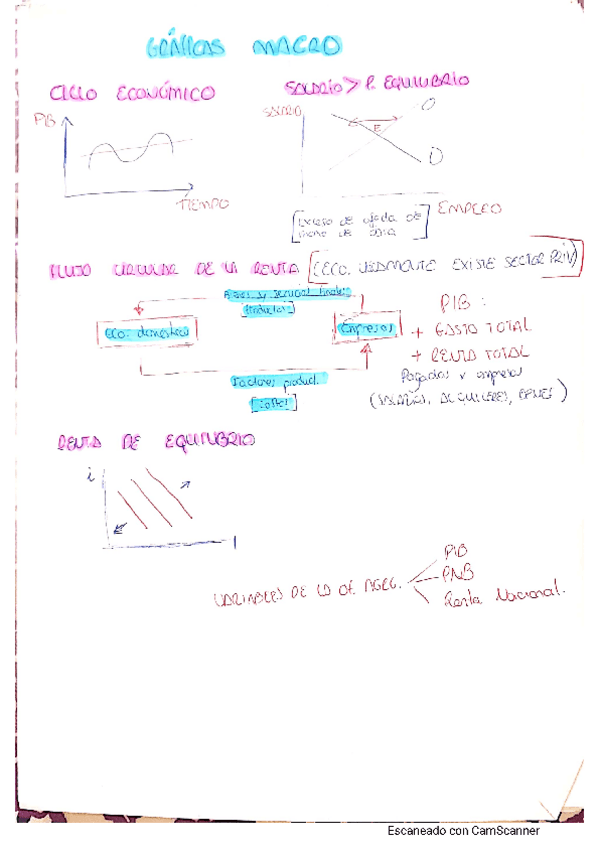 GRÁFICAS MACRO
CICLO ECONÓMICO
SALARIO > P. EQUILIBRIO
PIB
TIEMPO
SALARIO
O
E
D
EMPLEO
[Exceso de de
mano de obra]
FLUJO CIRCULAR DE LA RENTA (ECO. EXISTE SECTOR PRIV)
Bienes y servicios finales
[Productos]
Eco. domésticas
Empresas
Factores product.
[Costes]
PIB:
+ GASTO TOTAL
+ RENTA TOTAL
Pagadas x empresas
(SALARIOS, ALQUILERES, )
RENTA DE EQUILIBRIO
i
I
VARIABLES DE LA OF. AGREG.
PIB
PNB
Renta Nacional.
Escaneado con CamScanner